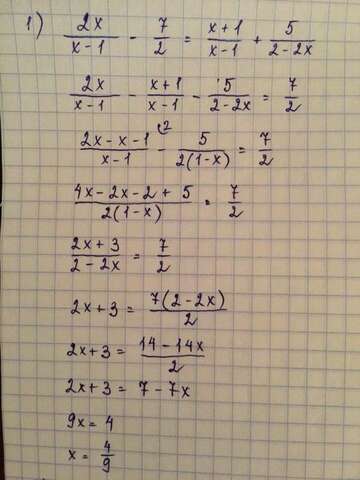 1) 2x/(x-1) - 7/2 = (x+1)/(x-1) + 5/(2-2x)
2x/(x-1) - (x+1)/(x-1) - 5/(2-2x) = 7/2
(2x-x-1)/(x-1) ^2 - 5/(2(1-x)) = 7/2
(4x-2x-2+5)/(2(1-x)) = 7/2
(2x+3)/(2-2x) = 7/2
2x+3 = 7(2-2x)/2
2x+3 = (14-14x)/2
2x+3 = 7-7x
9x = 4
x = 4/9